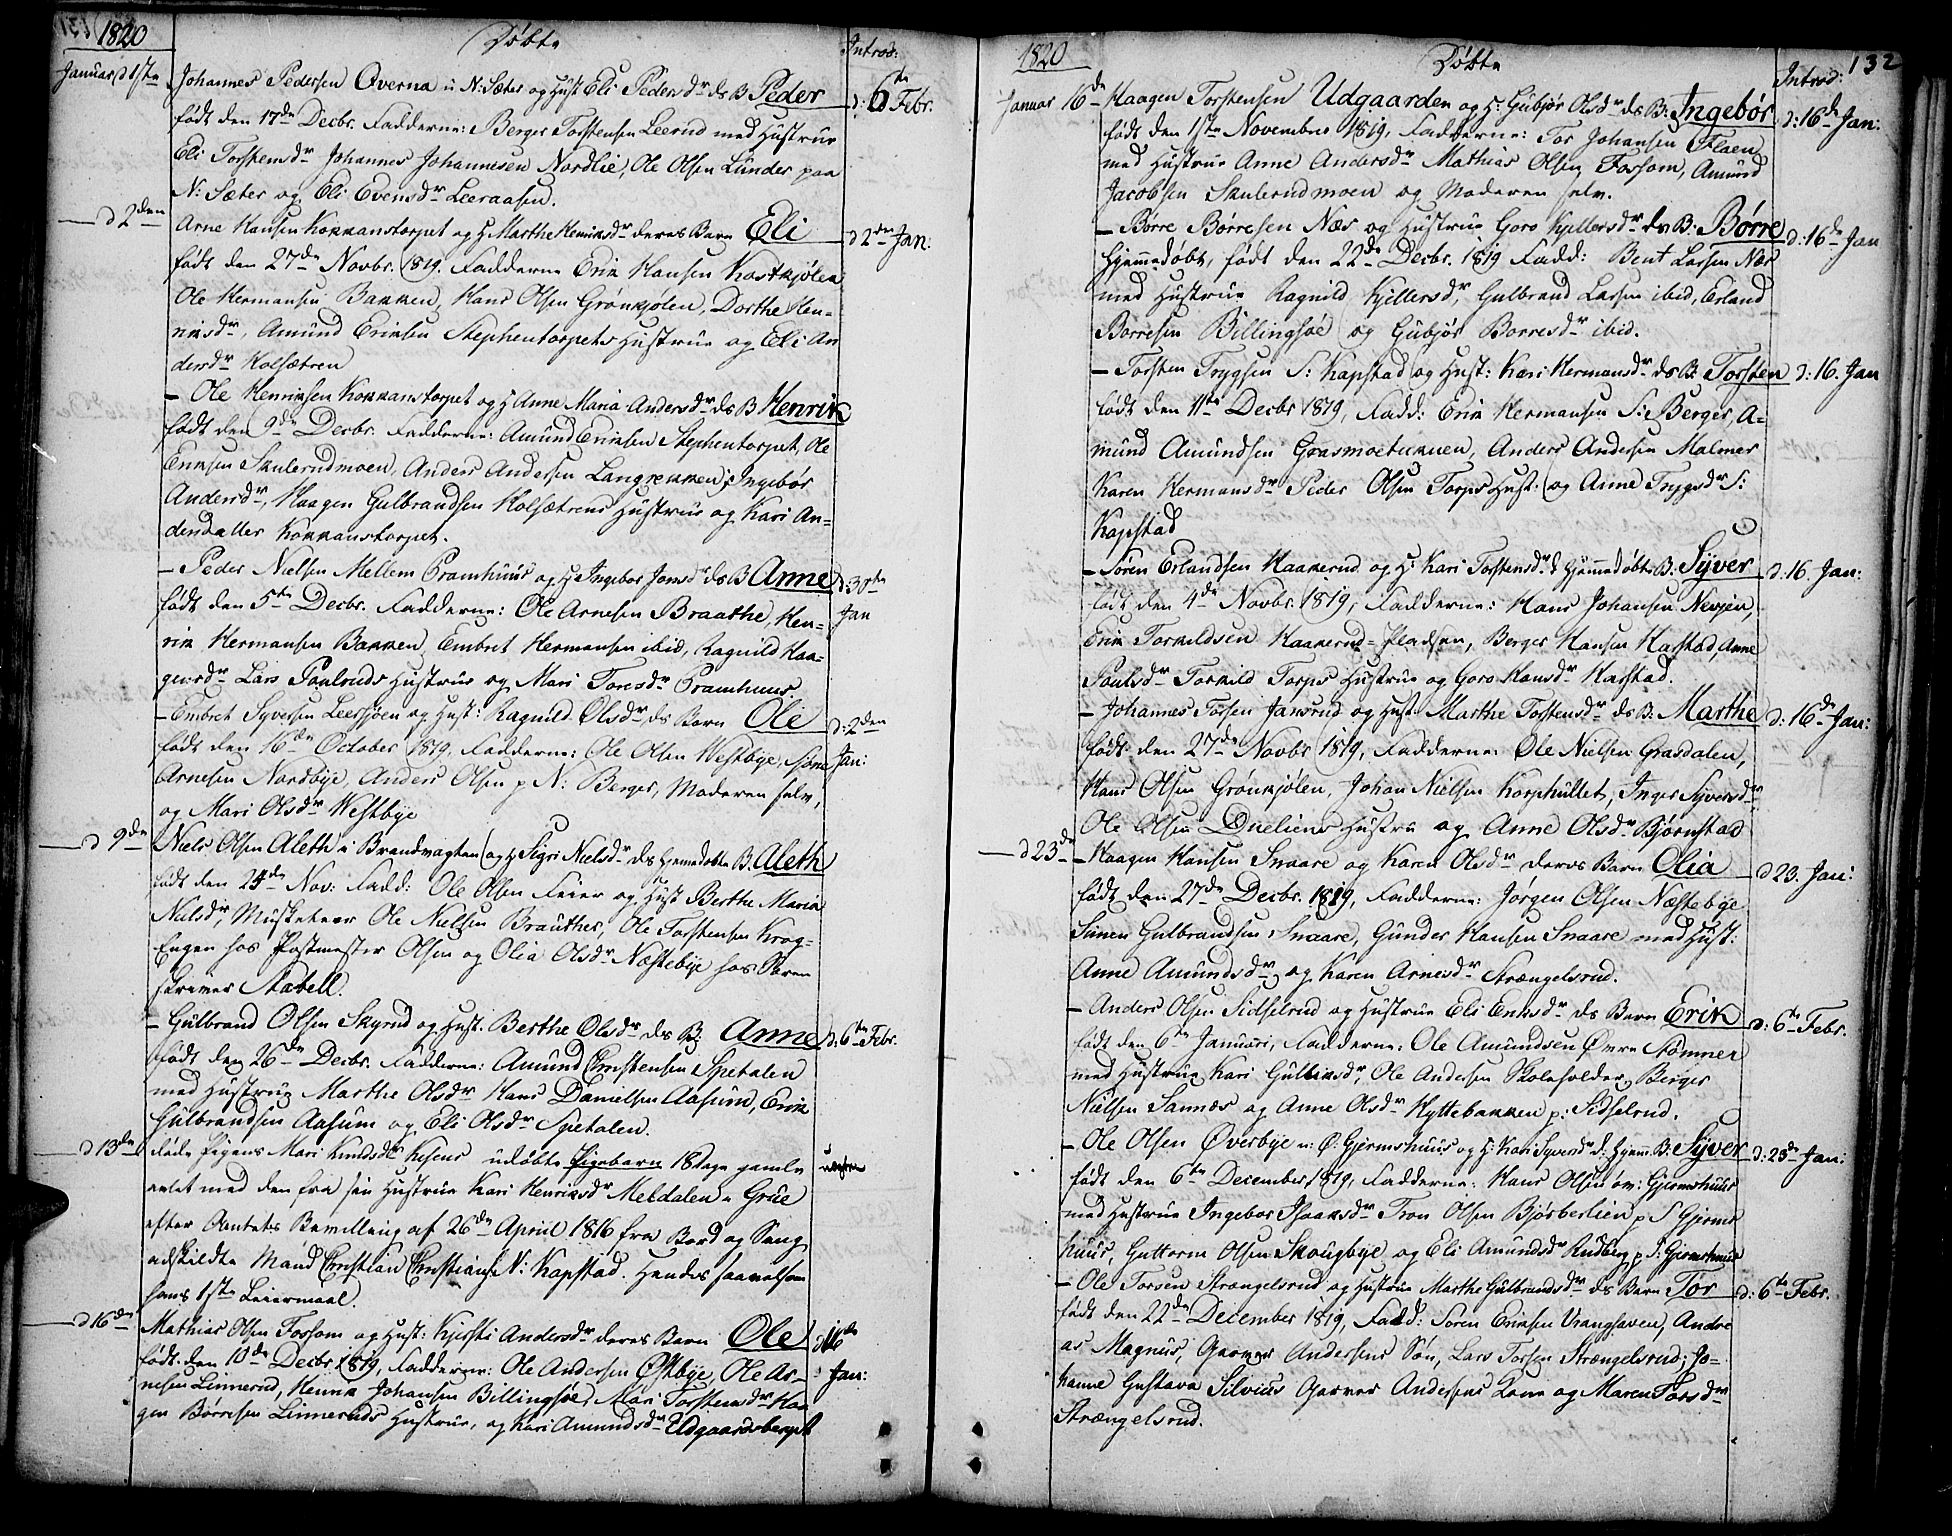 1820
Døbte
Introd:
Januar d 1ste Johannes Pedersen Overna u N: Sæter og Hust Eli Pedersdr ds B Peder d: 6te Febr.
født den 17de Decbr. Fadderne: Berger Torstensen Leerud med Hustrue
Eli Torstensdr Johannes Johannesen Nordlie, Ole Olsen Lunder paa
N: Sæter og Eli Evensdr Leeraasen.
d 2den Arne Hansen Kokkanstorpet og H Marthe Henriksdr deres Barn Eli d 2den Jan:
født den 27de Novbr. 1819. Fadderne Erik Hansen Kastkjølen
Ole Hermansen Bakken, Hans Olsen Grønkjølen, Dorthe Hen-
riksdr, Amund Eriksen Stephentorpets Hustrue og Eli An
dersdr Holsætren
- Ole Henriksen Kokkanstorpet og H Anne Maria Andersdr ds B Henrik
født den 9de Decbr. Fadderne: Amund Eriksen Stephentorpet, Ole
Eriksen Skulerudmoen, Anders Andersen Langrekken, Ingebør
Andersdr, Haagen Gulbrandsen Holsætrens Hustrue og Kari An-
dersdatter Kokkanstorpet.
- Peder Nielsen Mellem Pramhuus og H Ingebor Jonsdr ds B Anne d: 30te
født den 5te Decbr. Fadderne: Ole Arnesen Braathe, Hen- Jan
rik Hermansen Bakken, Embret Hermansen ibid, Ragnild Haa-
gensdr Lars Paulruds Hustrue og Mari Toresdr Pramhuus.
- Embret Syversen Leersjøen og Hust: Ragnild Olsdr ds Barn Ole d: 2den
født den 16de October 1819. Fadderne: Ole Olsen Westbye, Simen Jan:
Arnesen Nordbye, Anders Olsen p N: Berger, Moderen selv,
og Mari Olsdr Westbye
d 9de Niels Olsen Aleth i Brandvagten og H Sigri Nielsdr ds hjemedøbte B. Aleth
født den 24de Nov: Fadd: Ole Olsen Feier og Hust Berthe Maria
Nielsdr, Musketeer Ole Nielsen Brauther, Ole Torstensen Krog-
Engen hos Postmester Olsen og Olia Olsdr Næstebye hos Soren
skriver Stabell.
- Gulbrand Olsen Skyrud og Hust. Berthe Olsdr ds B: Anne d: 6te Febr.
født den 26de Decbr. Fadderne: Amund Christensen Spetalen
med Hustrue Marthe Olsdr Hans Danielsen Aasum, Erik
Gulbrandsen Aasum og Eli Olsdr Spetalen.
d 13de døde Pigens Mari Knudsdr udøbte Pigebarn 18 dage gamle
avlet med den fra sin Hustrue Kari Henriksdr Meldalen i Grue
efter Amtets Bevilling af 26de April 1816 fra Bord og Seng
adskildte Mand Christian Christians N: Kapstad. Hendes saavelsom
hans 1ste Leiermaal.
d 16de Mathias Olsen Fossom og Hust: Kjersti Andersdr deres Barn Ole d 16de
født den 10de Decbr 1819, Fadderne: Ole Andersen Østbye, Ole Ar- Jan:
nesen Linnerud, Henrik Johansen Billingsøe, Mari Torstensdr Haa
gen Børresen Linneruds Hustrue, og Kari Amundsdr Udgaardsberget
1820
Døbte
Introd:
132
Januar 16de Haagen Torstensen Udgaarden og H: Gubjør Olsdr ds B: Ingebør d: 16de Jan:
født den 1ste November 1819, Fadderne: Tor Johansen Flaen
med Hustrue Anne Andersdr Mathias Olsen Fossom, Amund
Jacobsen Skulerudmoen og Moderen selv.
- Børre Børresen Næs og Hustrue Goro Kjellersdr ds B: Børre d: 16de Jan
hjemedøbt, født den 22de Decbr. 1819 Fadd: Bent Larsen Næs
med Hustrue Ragnild Kjillersdr, Gulbrand Larsen ibid, Erland
Borresen Billingsøe og Gubjør Borresdr ibid.
- Torsten Trygsen S: Kapstad og Hust: Kari Hermansdr ds B: Torsten d: 16. Jan
født den 11te Decbr 1819, Fadd: Erik Hermansen S: Berger, A-
mund Amundsen Grasmoetunnen, Anders Andersen Malmer
Karen Hermansdr Peder Olsen Torps Hust: og Anne Trygsdr S:
Kapstad
- Søren Erlandsen Haakerud og H: Kari Torstensdr d hjemmedøbte B: Syver d: 16. Jan:
født den 4de Novbr. 1819, Fadderne: Hans Johansen Neujen,
Erik Torkildsen Haakerud-Pladsen, Berger Hansen Harstad, Anne
Poulsdr Torkild Torps Hustrue og Goro Hansdr Harstad.
- Johannes Torsen Jansrud og Hust Marthe Torstensdr ds B: Marthe d: 16de Jan:
født den 27de Novbr 1819, Fadderne: Ole Nielsen Grasdalen,
Hans Olsen Grønkjølen, Johan Nielsen Korphullet, Inger Syversdr
Ole Olsen Dueliens Hustru og Anne Olsdr Bjørnstad
d 23de - Haagen Hansen Snaare og Karen Olsdr deres Barn Olia d 23. Jan:
født den 27de Decbr. 1819, Fadderne: Jørgen Olsen Næstebye
Simen Gulbrandsen Snaare, Gunder Hansen Snaare med Hust:
Anne Amundsdr og Karen Arnesdr Strængelsrud.
- Anders Olsen Sidselrud og Hustrue Eli Eriksdr ds Barn Erik d: 6te Febr.
født den 6te Januari, Fadderne: Ole Amundsen Øvre Stømner
med Hustrue Kari Gulliksdr, Ole Andersen Skoleholder, Berger
Nielsen Sannæs og Anne Olsdr Hyttebakken p: Sidselrud.
- Ole Olsen Øverbye u: Ø: Gjermshuus og H: Kari Syversdr d: hjem: B: Syver d: 23de Jan:
født den 6te December 1819, Fadderne: Hans Olsen øv: Gjermshuus
med Hustrue Ingebor Isaaksdr Tron Olsen Bjørberlien p S Gjerms
huus, Guttorm Olsen Skougbye og Eli Amundsdr Rudberg p S: Gjermshuus
- Ole Torsen Strængelsrud og Hustrue Marthe Gulbrandsdr ds Barn Tor d: 6te Febr.
født den 22de December 1819, Fadd: Søren Eriksen Vranghaven, Andre
as Magnus, Garver Andersens Søn, Lars Torsen Strængelsrud, Jo-
hanne Gustava Silvius Garver Andersens Kone og Maren Torsdr
Strængelsrud.